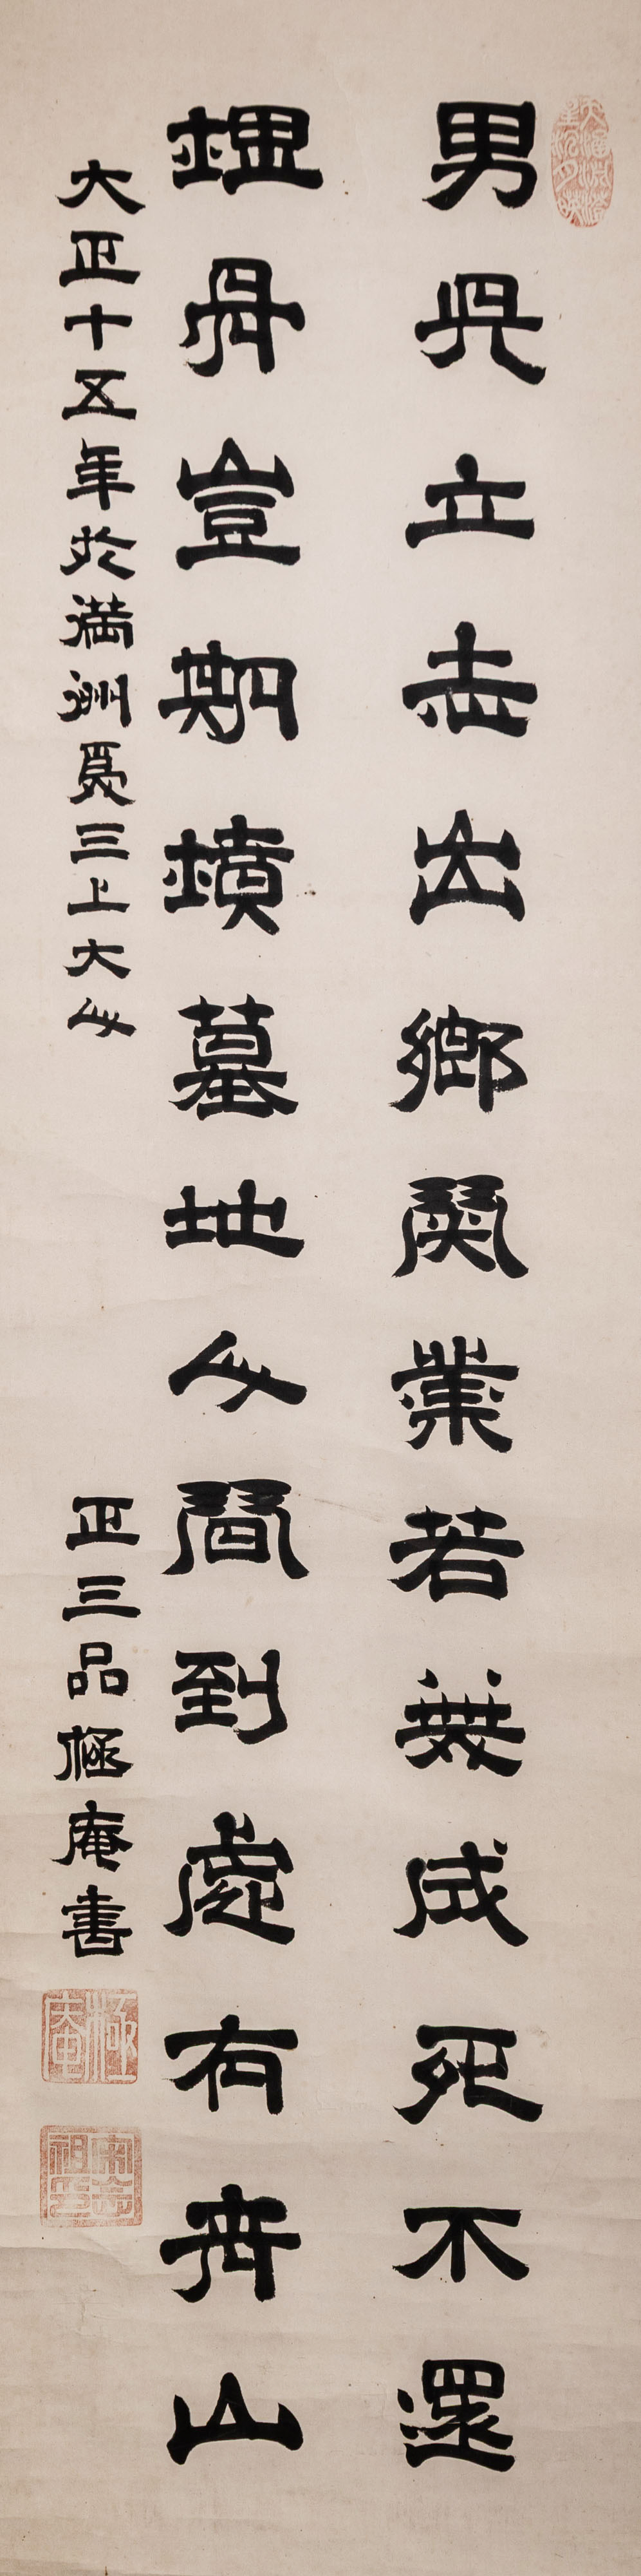 男兒立志出鄉關業若無成死不還
埋骨豈期墳墓地人間到處有青山
大正十五年於满洲爲三上大人
正三品極庵書
極庵